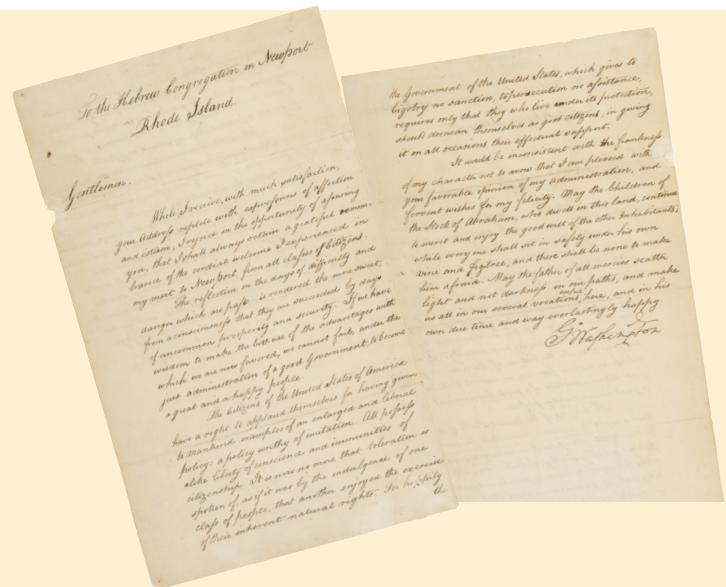 To the Hebrew Congregation in Newport
Rhode Island.
Gentlemen.
While I receive, with much satisfaction,
your Address replete with expressions of affection
and esteem, I rejoice in the opportunity of assuring
you, that I shall always retain a grateful remem-
brance of the cordial welcome I experienced in
my visit to Newport, from all classes of Citizens.
The reflection on the days of difficulty and
danger which are past, is rendered the more sweet,
from a consciousness that they are succeeded by days
of uncommon prosperity and security. If we have
wisdom to make the best use of the advantages with
which we are now favored, we cannot fail, under the
just administration of a good Government, to become
a great and a happy people.
The Citizens of the United States of America
have a right to applaud themselves for having given
to mankind examples of an enlarged and liberal
policy: a policy worthy of imitation. All possess
alike liberty of conscience and immunities of
citizenship. It is now no more that toleration is
spoken of, as if it was by the indulgence of one
class of people, that another enjoyed the exercise
of their inherent natural rights. For happily
the
the Government of the United States, which gives to
bigotry no sanction, to persecution no assistance,
requires only that they who live under its protection,
should demean themselves as good citizens, in giving
it on all occasions their effectual support.
It would be inconsistent with the frankness
of my character not to avow that I am pleased with
your favorable opinion of my Administration, and
fervent wishes for my felicity. May the Children of
the Stock of Abraham, who dwell in this land, continue
to merit and enjoy the good will of the other Inhabitants,
while every one shall sit in safety under his own
vine and figtree, and there shall be none to make
him afraid. May the father of all mercies scatter
light and not darkness in our paths, and make
us all in our several vocations useful here, and in his
own due time and way everlastingly happy.
G Washington